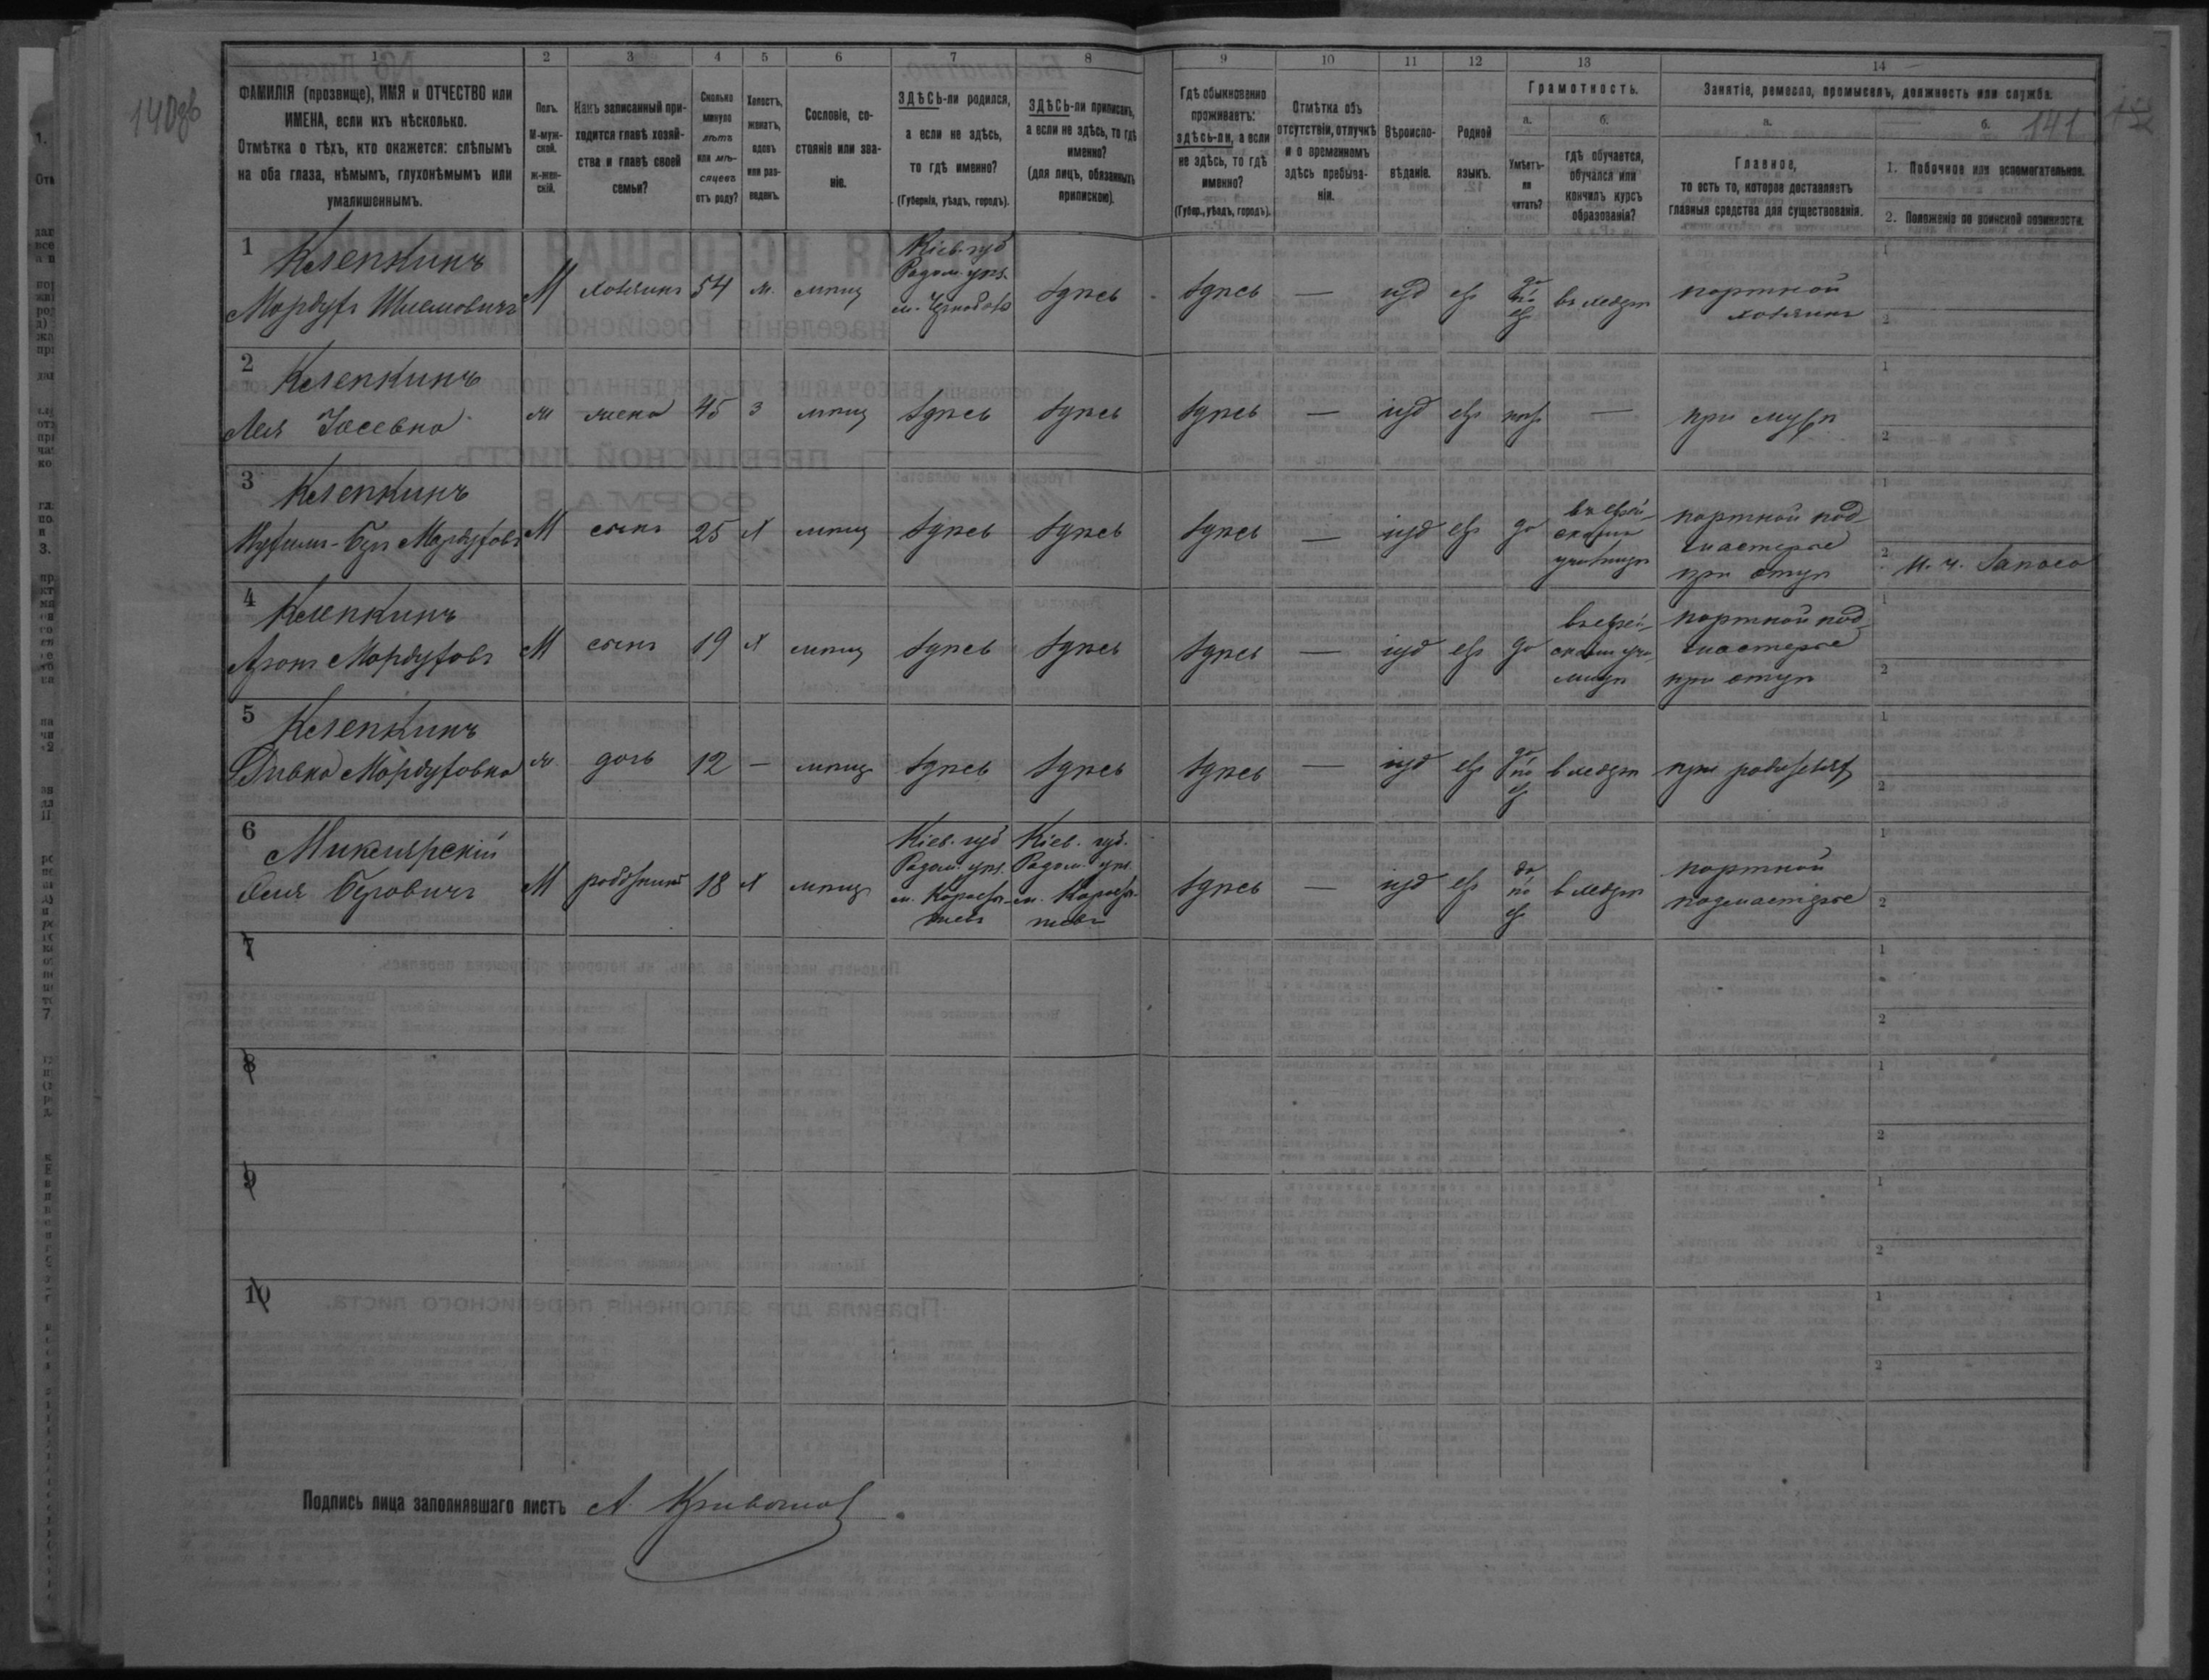 140об
141
1 2 3 4 5 6 7 8 9 10 11 12 13 14
ФАМИЛІЯ (прозвище), ИМЯ и ОТЧЕСТВО или
ИМЕНА, если ихъ нѣсколько.
Отмѣтка о тѣхъ, кто окажется: слѣпымъ
на оба глаза, нѣмымъ, глухонѣмымъ или
умалишеннымъ.
Полъ.
М-муж-
ской.
ж-жен-
скій.
Какъ записанный при-
ходится главѣ хозяй-
ства и главѣ своей
семьи?
Сколько
минуло
лѣтъ
или мѣ-
сяцевъ
отъ роду?
Холостъ,
женатъ,
вдовъ
или раз-
веденъ.
Сословіе, со-
стояніе или зва-
ніе.
ЗДѢСЬ-ли родился,
а если не здѣсь,
то гдѣ именно?
(Губернія, уѣздъ, городъ).
ЗДѢСЬ-ли приписанъ,
а если не здѣсь, то гдѣ
именно?
(для лицъ, обязанныхъ
припискою).
Гдѣ обыкновенно
проживаетъ:
здѣсь-ли, а если
не здѣсь, то гдѣ
именно?
(Губер., уѣздъ, городъ).
Отмѣтка объ
отсутствіи, отлучкѣ
и о временномъ
здѣсь пребыва-
ніи.
Вѣроиспо-
вѣданіе.
Родной
языкъ.
Грамотность.
а.
Умѣетъ-
ли
читать?
б.
гдѣ обучается,
обучался или
кончилъ курсъ
образованія?
Занятіе, ремесло, промыселъ, должность или служба.
а.
Главное,
то есть то, которое доставляетъ
главныя средства для существованія.
б.
1. Побочное или вспомогательное.
2. Положеніе по воинской повинности.
1
Клепкинъ
Мордухъ Шлемовичъ
М хозяинъ 54 ж. мѣщ
Кіев. губ
Радом. уѣз.
м. Чернобыль
здѣсь здѣсь — іуд евр
да
по
евр
въ хедерѣ
портной
хозяинъ
1
2
2
Клепкинъ
Лея Іосевна
ж жена 45 з мѣщ здѣсь здѣсь здѣсь — іуд евр нѣт —
при мужѣ
1
2
3
Клепкинъ
Мордухов
М сынъ 25 х мѣщ здѣсь здѣсь здѣсь — іуд евр да
въ еврей-
скомъ
училищѣ
портной под-
мастерье
при отцѣ
1
2 и. ч. Запаса
4
Клепкинъ
Аронъ Мордуховъ
М сынъ 19 х мѣщ здѣсь здѣсь здѣсь — іуд евр да
въ еврей-
скомъ учи-
лищѣ
портной под-
мастерье
при отцѣ
1
2
5
Клепкинъ
Ривка Мордуховна
ж. дочь 12 — мѣщ здѣсь здѣсь здѣсь — іуд евр
да
по
евр
в хедерѣ
при родителях
1
2
6
Берович
М работникъ 18 х мѣщ
Кіев. губ
Радом. уѣз.
м. Коросты-
шевъ
Кіев. губ.
Радом. уѣз.
м. Коросты-
шевъ
здѣсь — іуд евр
да
по
евр
в хедерѣ
портной
подмастерье
1
2
7
1
2
8
1
2
9
1
2
10
1
2
Подпись лица заполнявшаго листъ А.